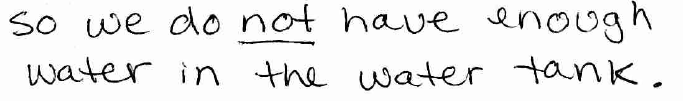 so we do not have enough
water in the water tank.